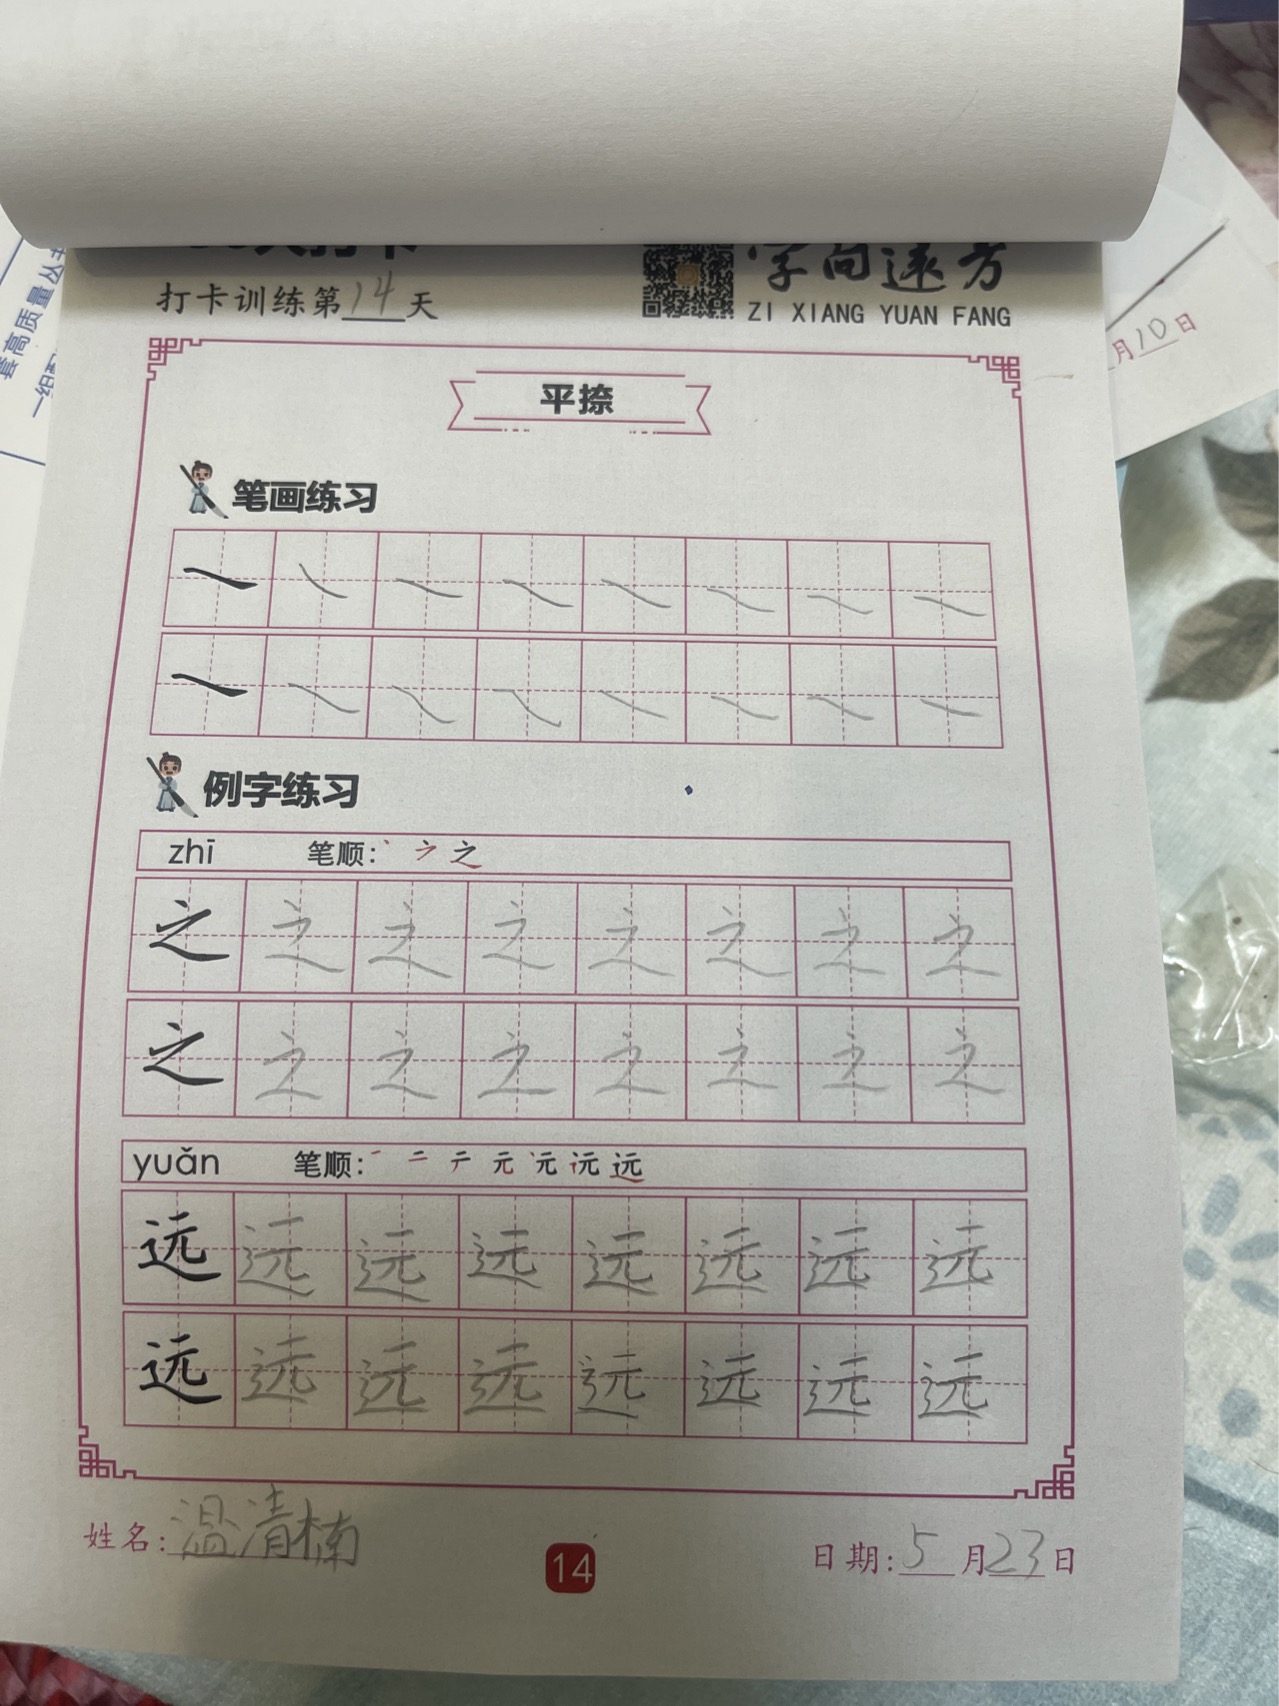 字向远方
打卡训练第14天
ZI XIANG YUAN FANG
月10日
套高质量丛书
平捺
笔画练习
例字练习
zhī 笔顺: 丶 之
之 之 之 之 之 之 之 之
之 之 之 之 之 之 之 之
yuǎn 笔顺: 一 二 元 远
远 远 远 远 远 远 远 远
远 远 远 远 远 远 远 远
姓名: 温清楠
14
日期: 5月23日